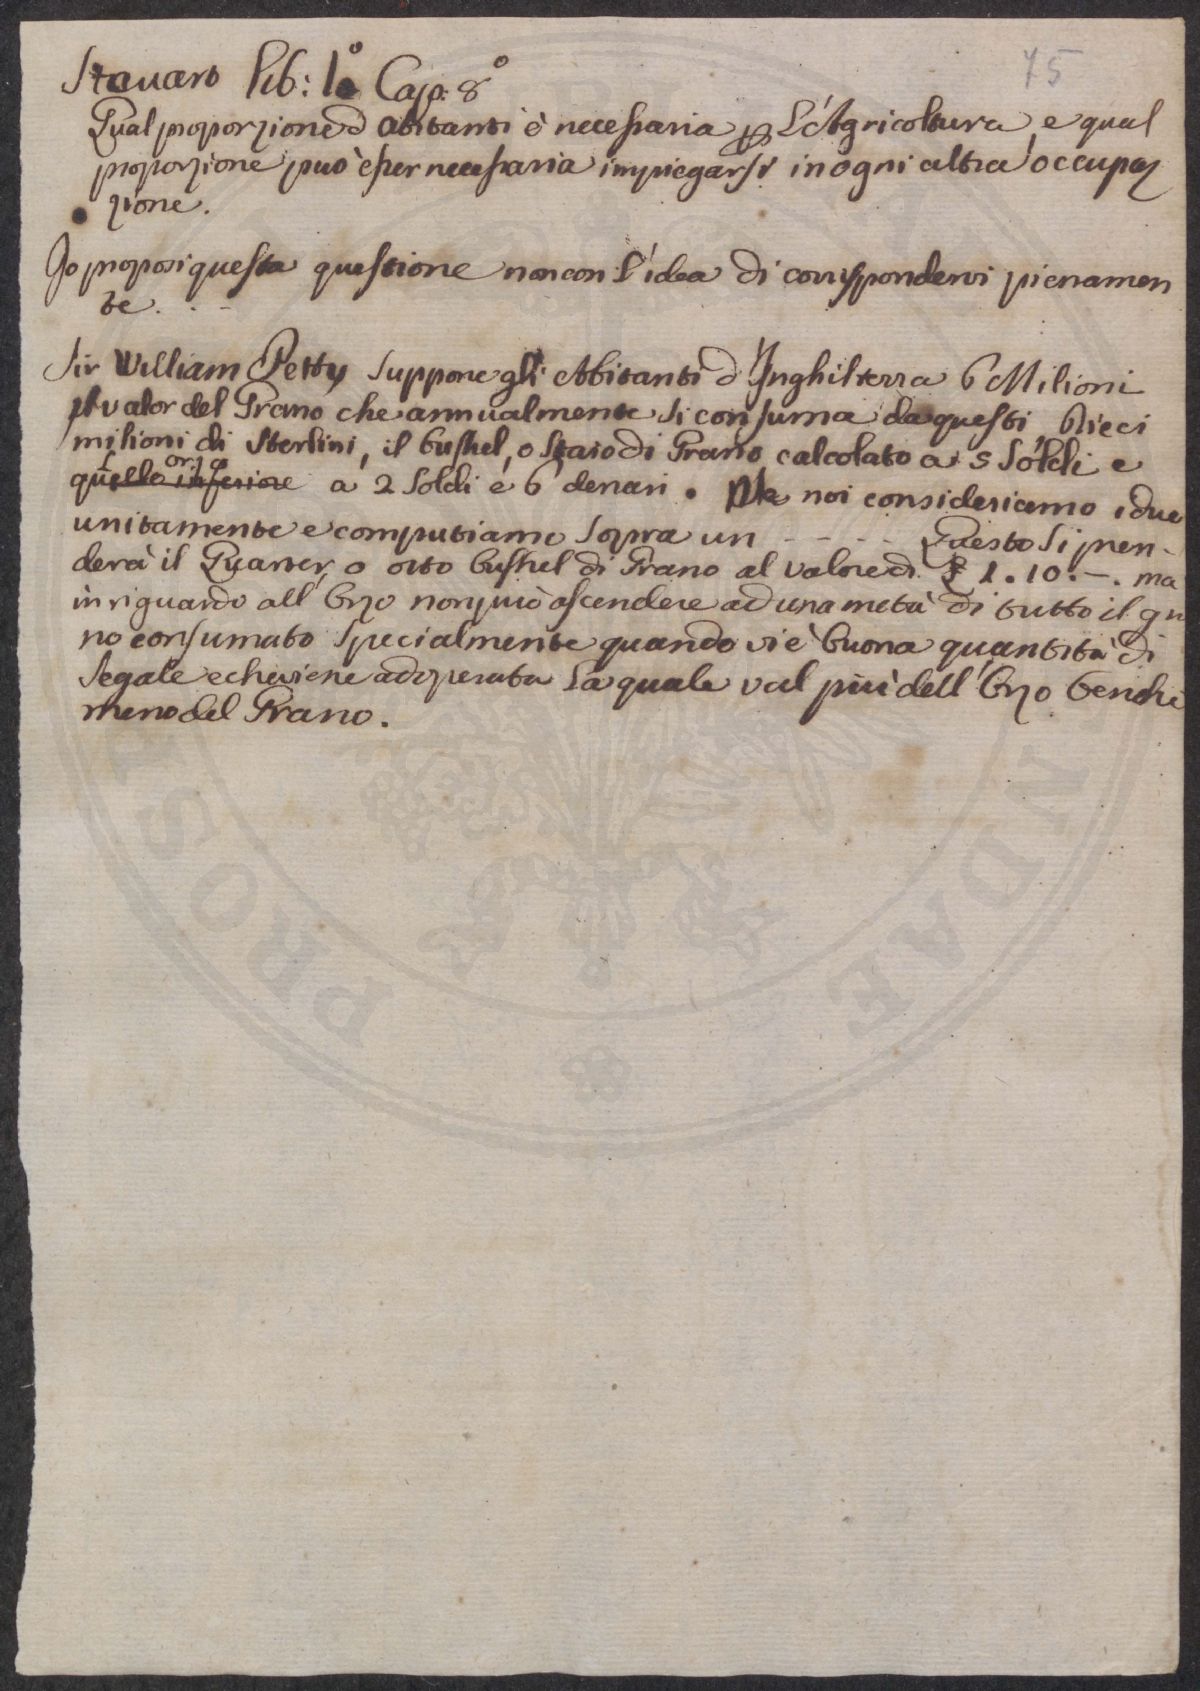 75
Stauart Lib: 1º Cap: 8º
Qual proporzione d'abitanti è necessaria p L'Agricoltura e qual
proporzione può esser necessaria impiegarsi in ogni altra occupa
zione.
Io proposi questa questione non con l'idea di corrispondervi pienamen
te. . -
Sir William Petty suppone gli Abitanti d'Inghilterra 6 Milioni
il valor del Grano che annualmente si consuma da questi Dieci
milioni di Sterlini, il bushel, o Staio di Grano calcolato a 5 Soldi e
quello inferiore orzo a 2 Soldi e 6 denari. noi consideriamo i due
unitamente e computiamo sopra un - - - - - Questo si pren-
derà il Quarter, o otto bushel di Grano al valore di £ 1.10.-. ma
in riguardo all'Orzo non può ascendere ad una metà di tutto il gra
no consumato specialmente quando vi è buona quantità di
segale e che viene adoperata la quale val più dell'Orzo benchè
meno del Grano.
PROSP
NDAE